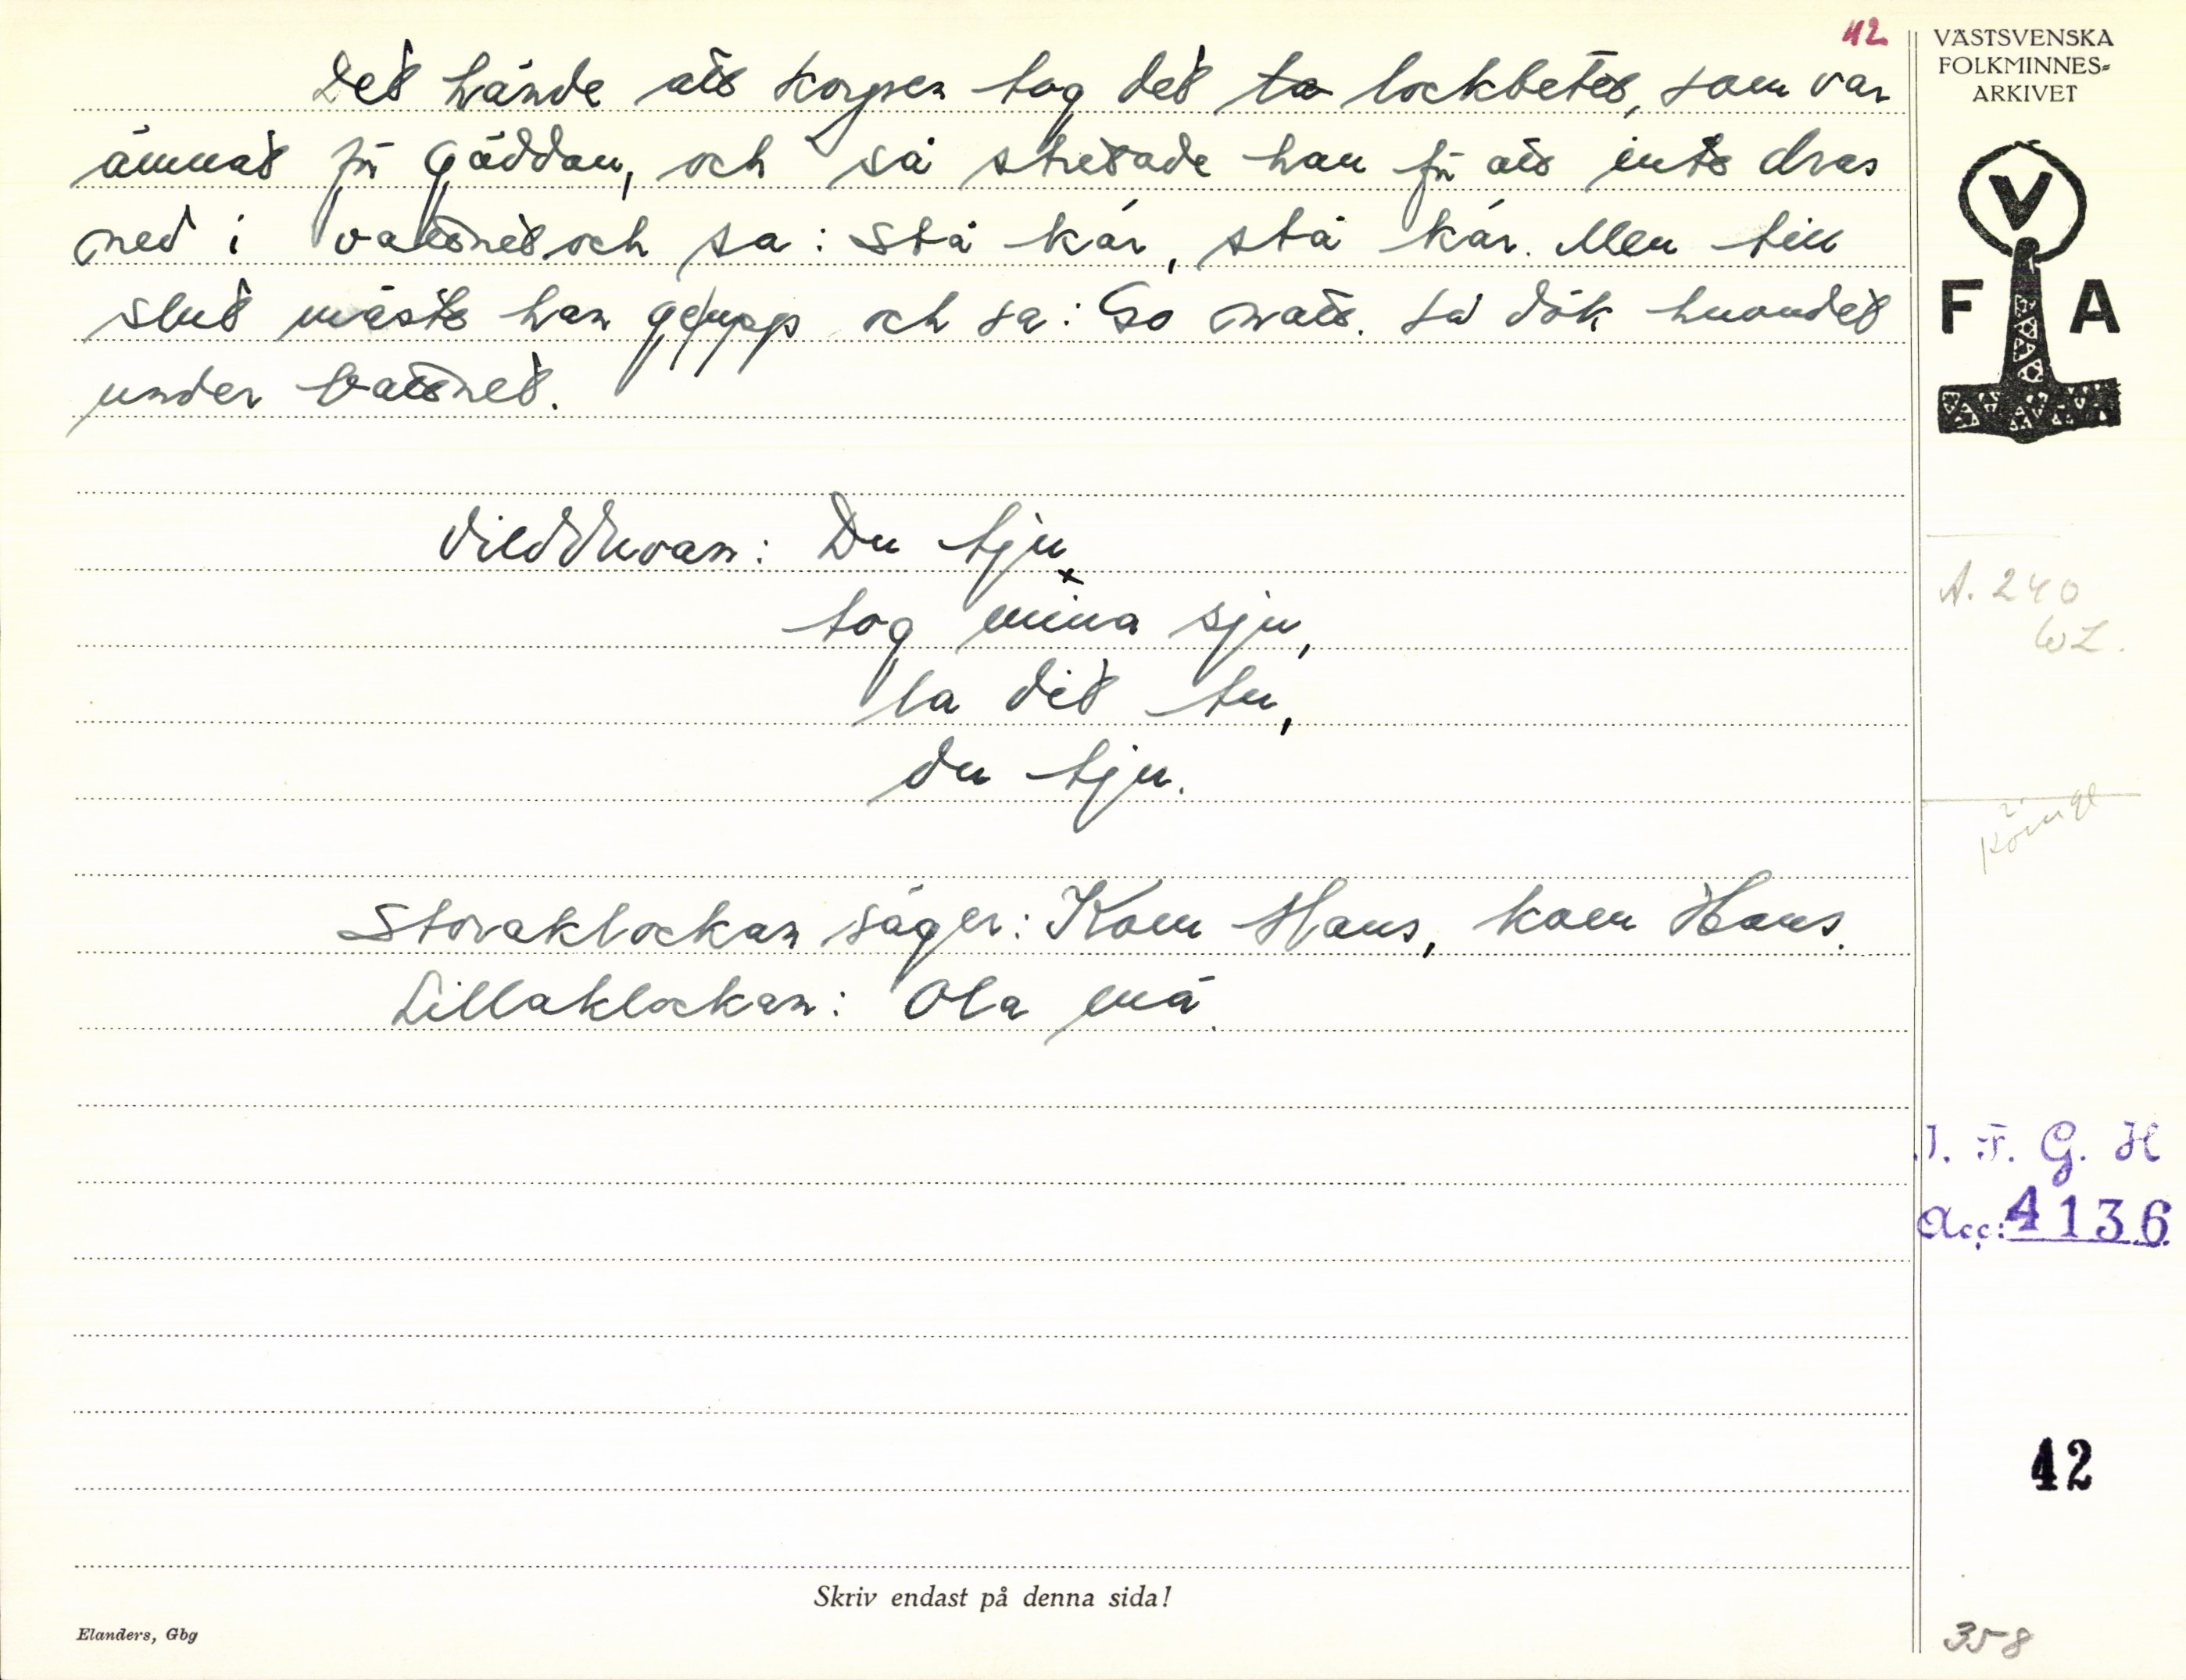 42
Det hände att korpen tog det ta lockbetet, som var
ämnat för gäddan, och så stretade han för att inte dras
ned i vattnet och sa: Stå kár, stå kár. Men till
slut måste han ge upp och sa: Go natt. Så dök huvudet
under vattnet.
Vildduvan: Du tju
x
tog mina sju,
la dit tu,
du tju.
Storaklockan säger: Kom Hans, kom Hans.
Lillaklockan: Ola må.
Skriv endast på denna sida!
Elanders, Gbg
VÄSTSVENSKA
FOLKMINNES-
ARKIVET
V
F A
A. 240
WL.
I. F. G. H
Acc: 4136
42
358